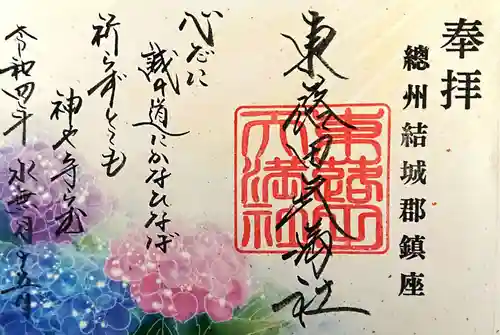 奉拝
總州結城郡鎮座
東蕗田天満社
東蕗田天満社
心だに
誠の道にかなひなば
祈らずとても
神や守らむ
令和四年 水無月十五日